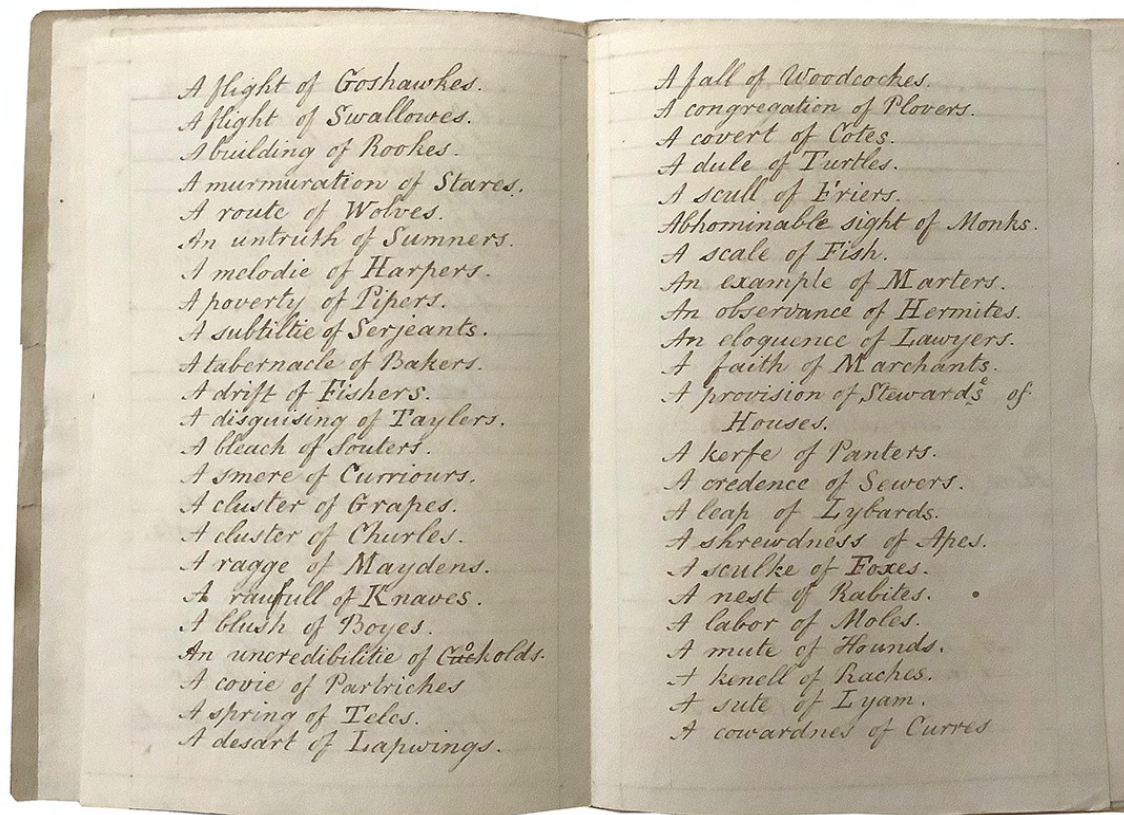 A flight of Goshawkes.
A flight of Swallowes.
A building of Rookes.
A murmuration of Stares.
A route of Wolves.
An untruth of Sumners.
A melodie of Harpers.
A poverty of Pipers.
A subtiltie of Serjeants.
A tabernacle of Bakers.
A drift of Fishers.
A disguising of Taylers.
A bleach of Souters.
A smere of Curriours.
A cluster of Grapes.
A cluster of Churles.
A ragge of Maydens.
A raufull of Knaves.
A blush of Boyes.
An uncredibilitie of Cockolds.
A covie of Partriches
A spring of Teles.
A desart of Lapwings.
A fall of Woodcockes.
A congregation of Plovers.
A covert of Cotes.
A dule of Turtles.
A scull of Friers.
Abhominable sight of Monks.
A scale of Fish.
An example of Marters.
An observance of Hermites.
An eloquence of Lawyers.
A faith of Marchants.
A provision of Stewards of
Houses.
A kerfe of Panters.
A credence of Sewers.
A leap of Lybards.
A shrewdness of Apes.
A sculke of Foxes.
A nest of Rabites.
A labor of Moles.
A mute of Hounds.
A kenell of Raches.
A sute of Lyam.
A cowardnes of Curres